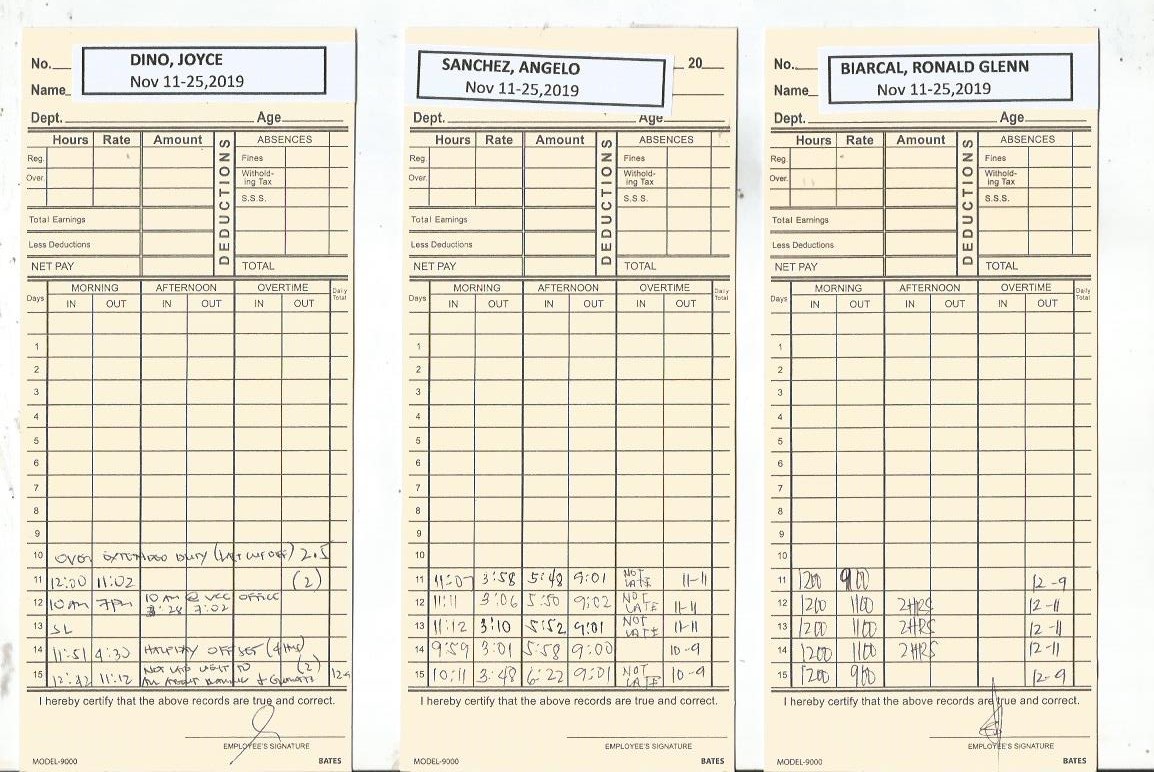 No.
DINO, JOYCE
Nov 11-25,2019
Name
Dept. Age
Hours Rate Amount DEDUCTIONS ABSENCES
Reg. Fines
Over. Withold-
ing Tax
S.S.S.
Total Earnings
Less Deductions
NET PAY TOTAL
Days MORNING AFTERNOON OVERTIME Daily Total
IN OUT IN OUT IN OUT
1
2
3
4
5
6
7
8
9
10 OVER EXTENDED DUTY (LAST CUT OFF) 2.5
11 12:00 11:02 (2)
12 10AM 7PM 10 AM @ VCC OFFICE
7:02
13 SL
14 11:51 4:30 HALFDAY OFFSET (4HRS)
15 12:42 11:12 NOT LATE WENT TO (2) 12-9
I hereby certify that the above records are true and correct.
EMPLOYEE'S SIGNATURE
MODEL-9000 BATES
20
SANCHEZ, ANGELO
Nov 11-25,2019
Dept. Age
Hours Rate Amount DEDUCTIONS ABSENCES
Reg. Fines
Over. Withold-
ing Tax
S.S.S.
Total Earnings
Less Deductions
NET PAY TOTAL
Days MORNING AFTERNOON OVERTIME Daily Total
IN OUT IN OUT IN OUT
1
2
3
4
5
6
7
8
9
10
11 11:07 3:58 5:48 9:01 NOT LATE 11-11
12 11:11 3:06 5:50 9:02 NOT LATE 11-11
13 11:12 3:10 5:52 9:01 NOT LATE 11-11
14 9:59 3:01 5:58 9:00 10-9
15 10:11 3:48 6:22 9:01 NOT LATE 10-9
I hereby certify that the above records are true and correct.
EMPLOYEE'S SIGNATURE
MODEL-9000 BATES
No.
BIARCAL, RONALD GLENN
Nov 11-25,2019
Name
Dept. Age
Hours Rate Amount DEDUCTIONS ABSENCES
Reg. Fines
Over. Withold-
ing Tax
S.S.S.
Total Earnings
Less Deductions
NET PAY TOTAL
Days MORNING AFTERNOON OVERTIME Daily Total
IN OUT IN OUT IN OUT
1
2
3
4
5
6
7
8
9
10
11 1200 900 12-9
12 1200 1100 2HRS 12-11
13 1200 1100 2HRS 12-11
14 1200 1100 2HRS 12-11
15 1200 900 12-9
I hereby certify that the above records are true and correct.
EMPLOYEE'S SIGNATURE
MODEL-9000 BATES